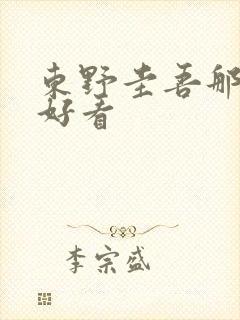 東野圭吾那
好看
李宗盛